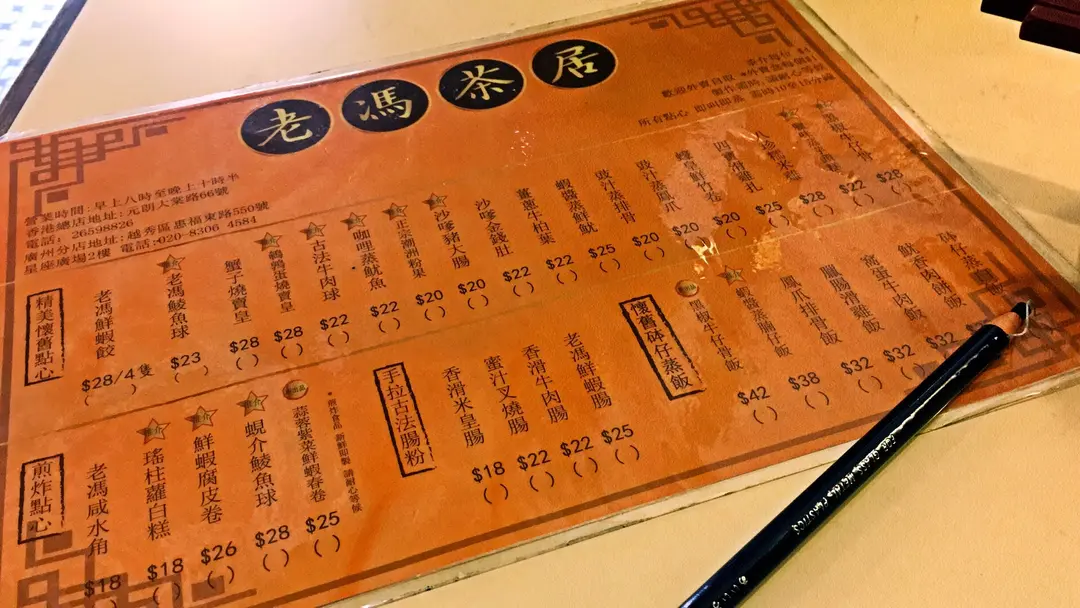 老馮茶居
營業時間：早上八時至晚上十時半
香港總店地址：元朗大棠路66號
電話：26598826
廣州分店地址：越秀區惠福東路550號
星座廣場2樓 電話：020-8306 4584
所有點心 即叫即蒸 需時10至15分鐘
精美懷舊點心
老馮鮮蝦餃 $28/4隻 ( )
老馮鯪魚球 $23 ( )
蟹子燒賣皇 $28 ( )
鵪鶉蛋燒賣皇 $28 ( )
古法牛肉球 $22 ( )
咖哩蒸魷魚 $22 ( )
正宗潮洲粉果 $20 ( )
沙嗲豬大腸 $20 ( )
沙嗲金錢肚 $22 ( )
薑蔥牛柏葉 $22 ( )
蝦醬蒸鮮魷 $25 ( )
豉汁蒸排骨 $20 ( )
豉汁蒸鳳爪 $20 ( )
$20 ( )
四寶滑雞扎 $25 ( )
$28 ( )
$22 ( )
$28 ( )
煎炸點心
老馮咸水角 $18 ( )
瑤柱蘿白糕 $18 ( )
鮮蝦腐皮卷 $26 ( )
蜆介鯪魚球 $28 ( )
蒜蓉紫菜鮮蝦春卷 $25 ( )
*煎炸食品 新鮮即製 請耐心等候
手拉古法腸粉
香滑米皇腸 $18 ( )
蜜汁叉燒腸 $22 ( )
香滑牛肉腸 $22 ( )
老馮鮮蝦腸 $25 ( )
懷舊砵仔蒸飯
黑椒牛仔骨飯 $42 ( )
蝦醬蒸腩仔飯 $38 ( )
鳳爪排骨飯 $32 ( )
臘腸滑雞飯 $32 ( )
窩蛋牛肉飯 $32
魷香肉餅飯